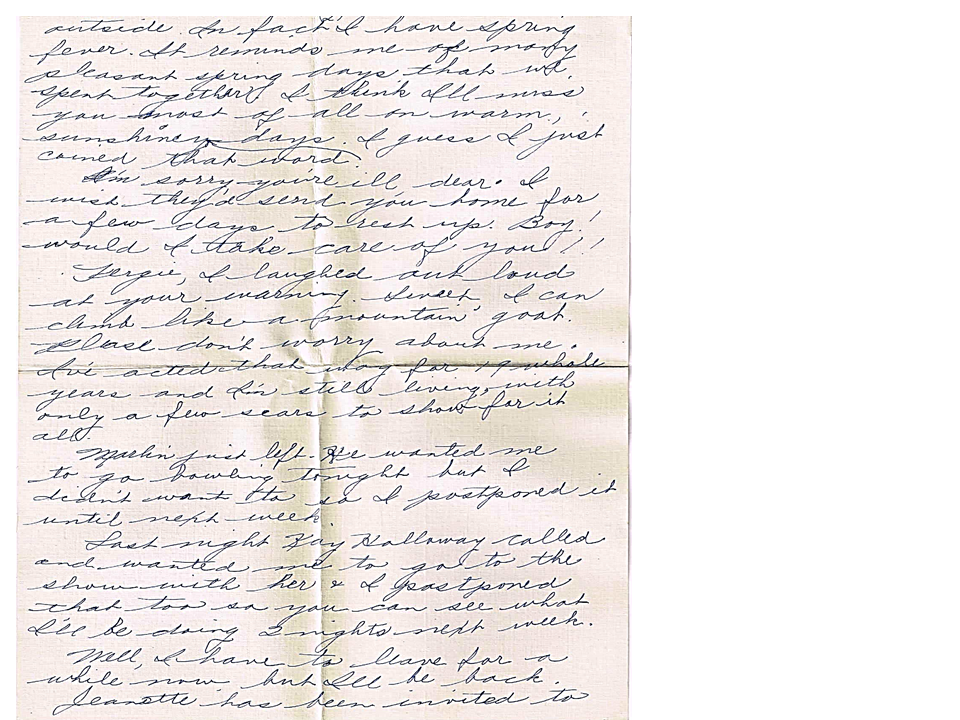 outside. In fact I have spring
fever. It reminds me of many
pleasant spring days that we
spent together. I think I'll miss
you most of all on warm,
sunshiney days. I guess I just
coined that word.
I'm sorry you're ill, dear. I
wish they'd send you home for
a few days to rest up. Boy!
would I take care of you!!
Fergie, I laughed out loud
at your warning. Sweet, I can
climb like a mountain goat.
Please don't worry about me.
I've acted that way for 19 whole
years and I'm still living, with
only a few scars to show for it
all.
Marlin just left. He wanted me
to go bowling tonight but I
didn't want to so I postponed it
until next week.
Last night Kay Holloway called
and wanted me to go to the
show with her & I postponed
that too so you can see what
I'll be doing 2 nights next week.
Well, I have to leave for a
while now but I'll be back.
Jeanette has been invited to